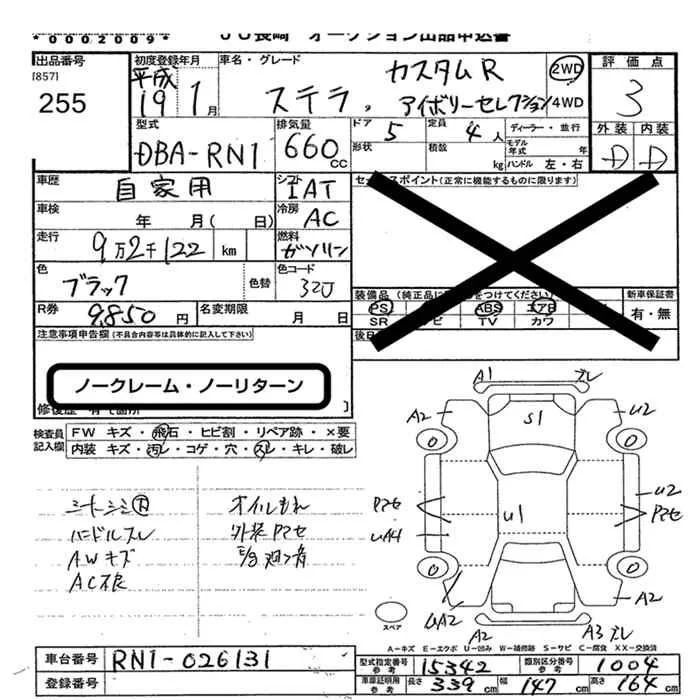 *0002009*
JU長崎 オークション出品申込書
出品番号
[857]
255
初度登録年月
平成
19 1月
車名・グレード
カスタムR
ステラ, アイボリーセレクション
2WD
4WD
評価点
3
外装 内装
D D
型式
DBA-RN1
排気量
660 CC
ドア 5
定員 4人
ディーラー・並行
形状
積数 kg
モデル年式 年
ハンドル 左・右
車歴
自家用
シフト
IAT
セールスポイント(正常に機能するものに限ります)
車検 年 月( 日)
冷房
AC
走行
9万2千122 km
燃料
ガソリン
色
ブラック
色替
色コード
32J
装備品 (純正品に をつけてください)
新車保証書
PS ABS エアB
有・無
SR ナビ TV カワ
R券 9,850円
名変期限 月 日
注意事項申告欄(不具合内容等は具体的に記入して下さい)
後日
ノークレーム・ノーリターン
修復歴 有 箇所
検査員記入欄
FW キズ・飛石・ヒビ割・リペア跡・×要
内装 キズ・汚レ・コゲ・穴・スレ・キレ・破レ
シートシミ内
ハンドルスレ
AWキズ
AC不良
オイルもれ
外装Pマセ
E/g廻り音
A1 スレ
A2 S1 U2
0 0
Pマセ U1 U2
Pマセ
UA4
0 0
UA2 A2
A2 A3 スレ
スペア
A-キズ E-エクボ U-凹み W-補修跡 S-サビ C-腐食 XX-交換済
車台番号 RN1-026131
登録番号
型式指定番号 参考 15342
類別区分番号 参考 1004
車庫証明用 参考 長さ 339 cm 幅 147 cm 高さ 164 cm